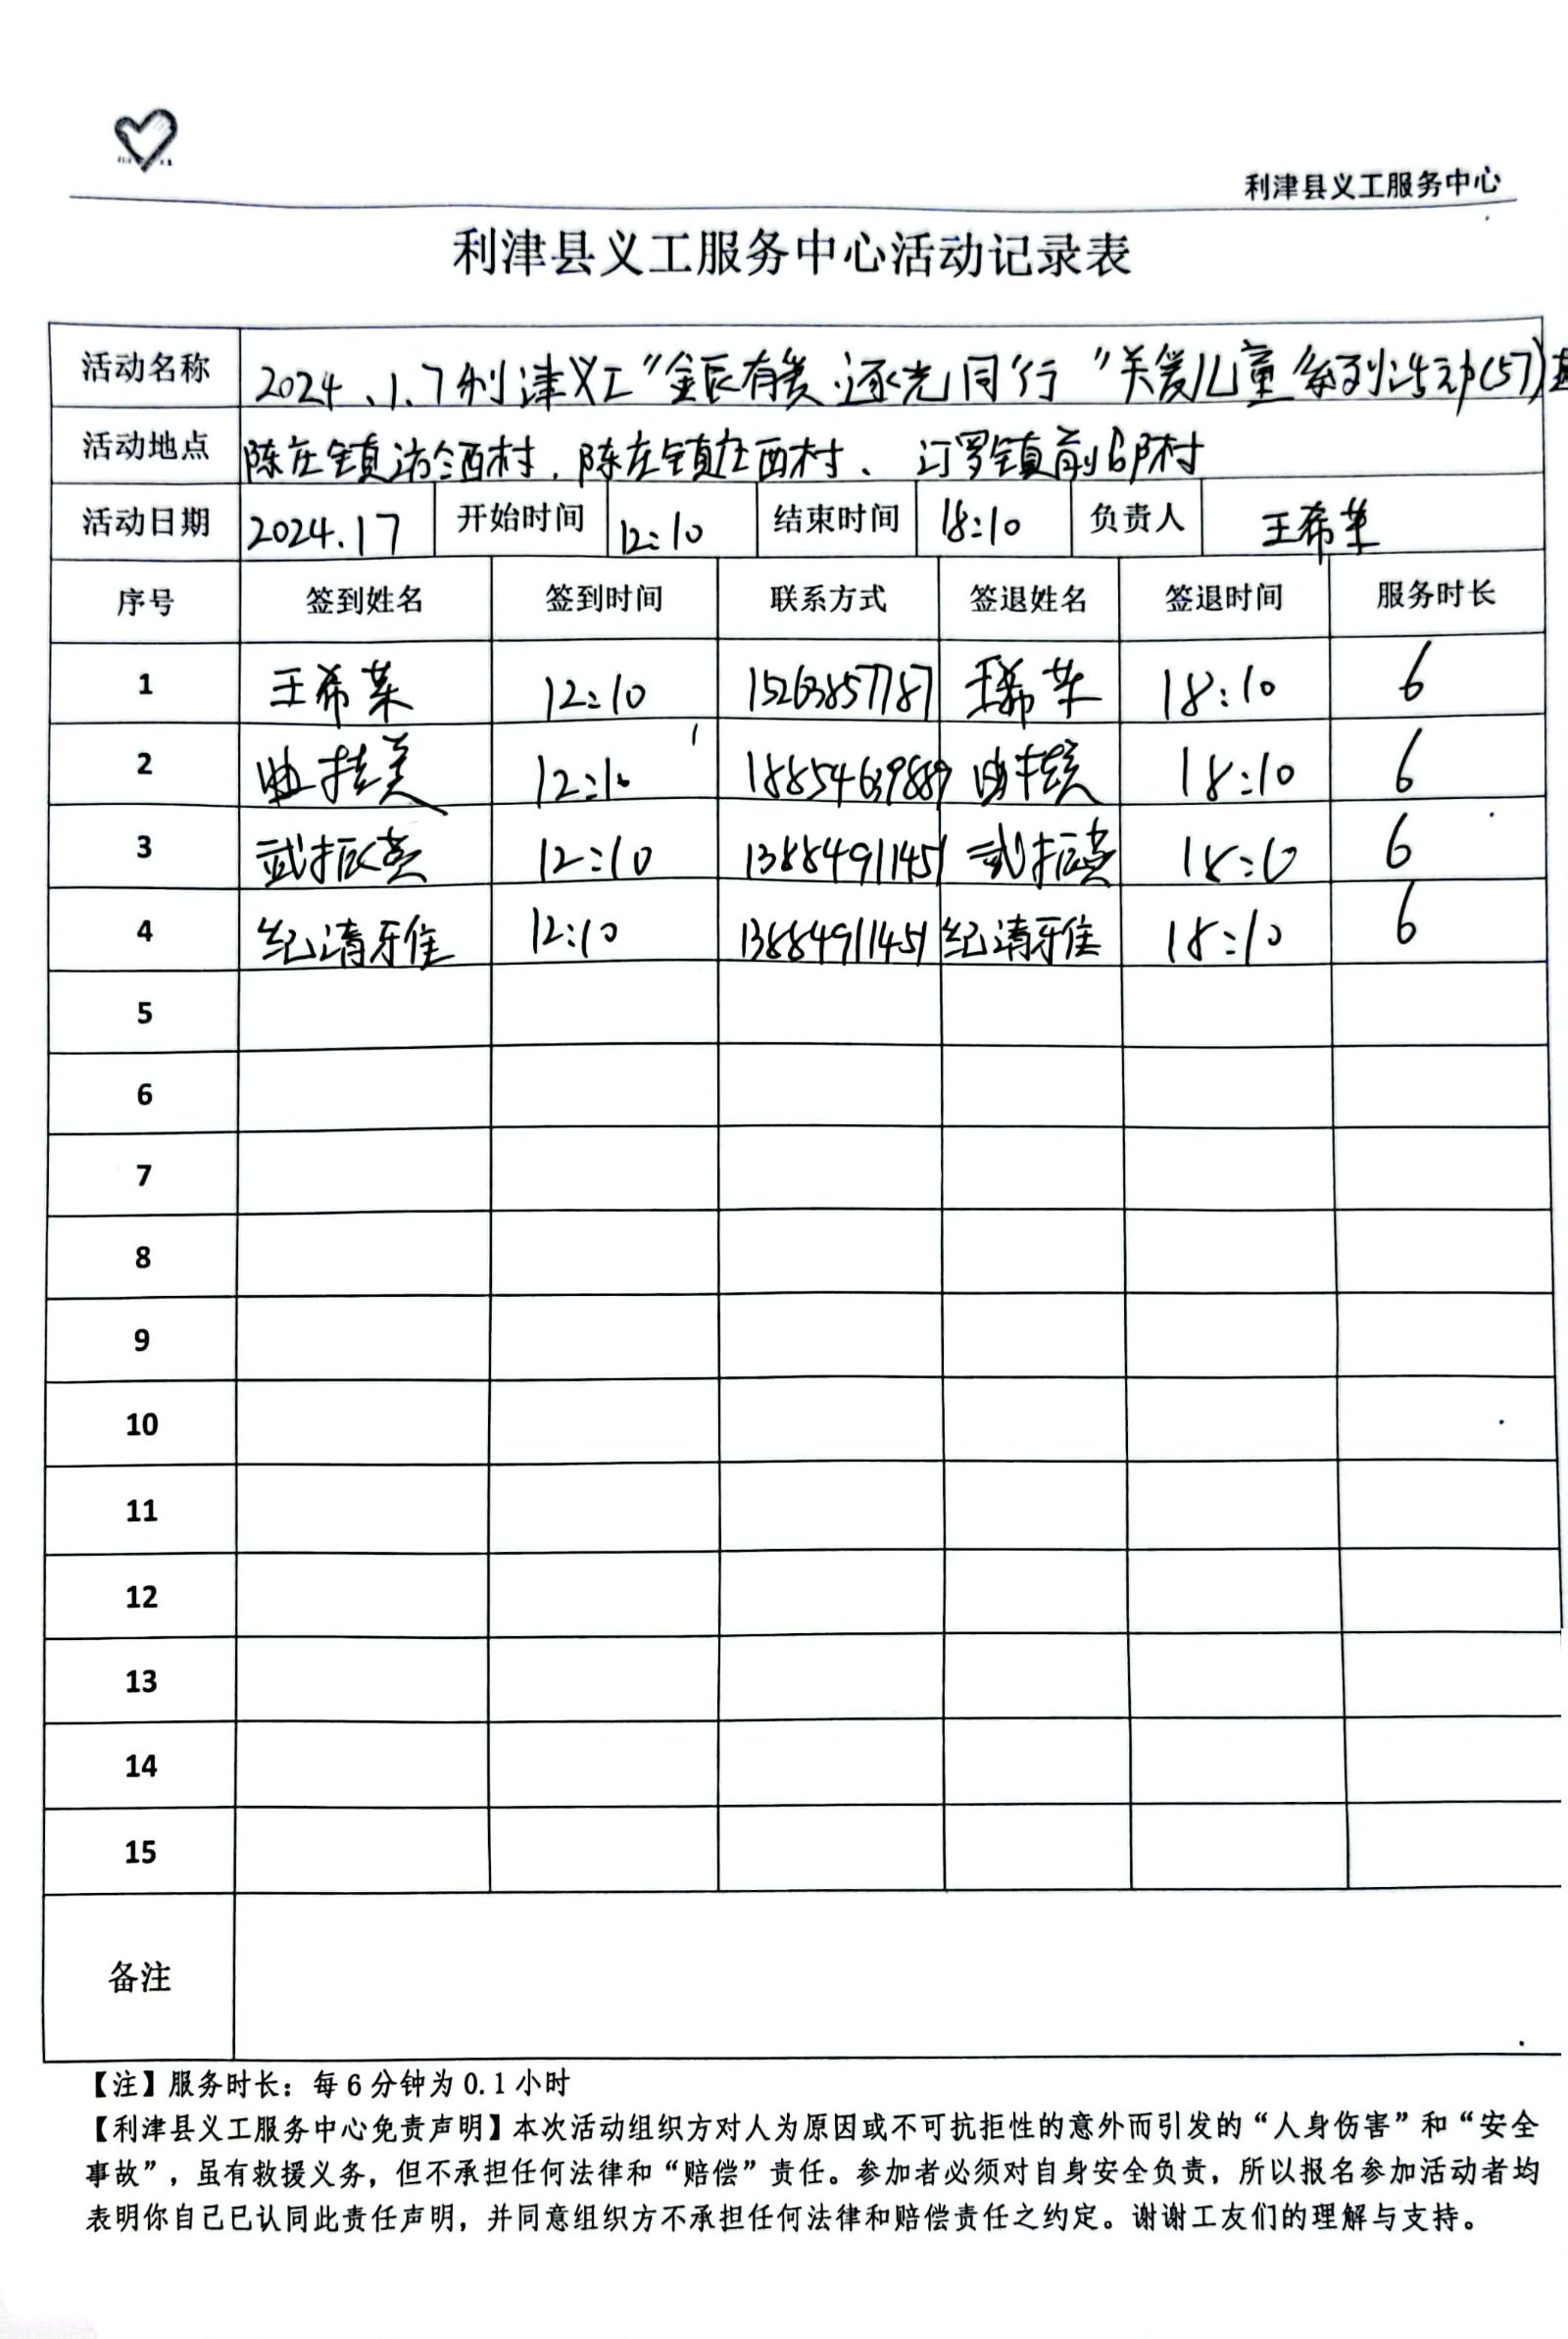 利津县义工服务中心
利津县义工服务中心活动记录表
活动名称 2024、1、7利津义工“金辰有爱·逐光同行”关爱儿童系列活动(57)
活动地点 陈庄镇 西村、陈庄镇庄西村、汀罗镇前 村
活动日期 2024.17 开始时间 12:10 结束时间 18:10 负责人 王希苹
序号 签到姓名 签到时间 联系方式 签退姓名 签退时间 服务时长
1 王希苹 12:10 15263857787 王希苹 18:10 6
2 曲 美 12:10 18854639889 曲 18:10 6
3 武振英 12:10 13884911451 武振英 18:10 6
4 纪清雅 12:10 13884911451 纪清雅 18:10 6
5
6
7
8
9
10
11
12
13
14
15
备注
【注】服务时长：每6分钟为0.1小时
【利津县义工服务中心免责声明】本次活动组织方对人为原因或不可抗拒性的意外而引发的“人身伤害”和“安全
事故”，虽有救援义务，但不承担任何法律和“赔偿”责任。参加者必须对自身安全负责，所以报名参加活动者均
表明你自己已认同此责任声明，并同意组织方不承担任何法律和赔偿责任之约定。谢谢工友们的理解与支持。